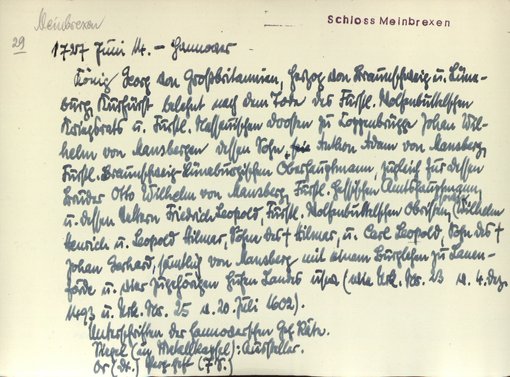 Meinbrexen
Schloss Meinbrexen
29
1727 Juni 14. - Hannover
König Georg von Großbritannien, Herzog von Braunschweig u. Lüne-
burg, Kurfürst belehnt nach dem Tode des Fürstl. Wolfenbüttelschen
Kriegsrats u. Fürstl. Nassauischen Drosten zu Coppenbrügge Johan Wil-
helm von Mansberg dessen Sohn Anton Adam von Mansberg
Fürstl. Braunschweig-Lüneburgischen Oberhauptmann, zugleich für dessen
Bruder Otto Wilhelm von Mansberg, Fürstl. Hessischen Amtshauptmann
u. dessen Vettern Friedrich Leopold, Fürstl. Wolfenbüttelschen Obristen, Wilhelm
Henrich u. Leopold Hilmer, Söhne des † Hilmer, u. Carl Leopold, Sohn des †
Johan Gerhard, sämtlich von Mansberg mit einem Burglehen zu Lauen-
förde u. vier zugehörigen Hufen Landes usw (wie Urk. Nr. 23 v. 4. Dez.
u. Urk. Nr. 25 v. 20. Juli 1602).
Unterschriften der Hannoverschen Geh. Räte.
Siegel (in Metallkapsel): Aussteller.
Or. (Dt.) Perg.heft (7 S.)